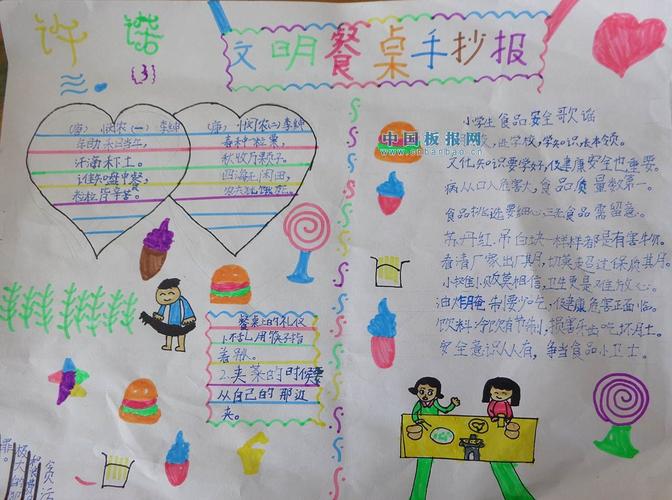 许
(3)
文明餐桌手抄报
(唐) 悯农(一) 李绅
汗滴禾下土。
谁知盘中餐,
粒粒皆辛苦。
(唐) 悯农(二) 李绅
春种一粒粟,
秋收万颗子。
四海无闲田,
农夫犹饿死。
餐桌上的礼仪
1.不乱用筷子指
着别人。
2.夹菜的时候要
从自己的那边
夹。
小学生食品安全歌谣
中国板报网
www.cnbanbao.cn
进学校,学知识长本领。
文化知识要学好,健康安全也重要。
病从口入危害大,食品质量数第一。
食品挑选要细心,三无食品需留意。
苏丹红、吊白块一样样都是有害物。
看清厂家出厂期,切莫超过保质其月。
小摊小贩莫相信,卫生更是不放心。
油炸腌制要少吃,健康危害正面临。
饮料冷饮有节制,损害乐曲吃坏月土。
安全意识人人有,争当食品小卫士。